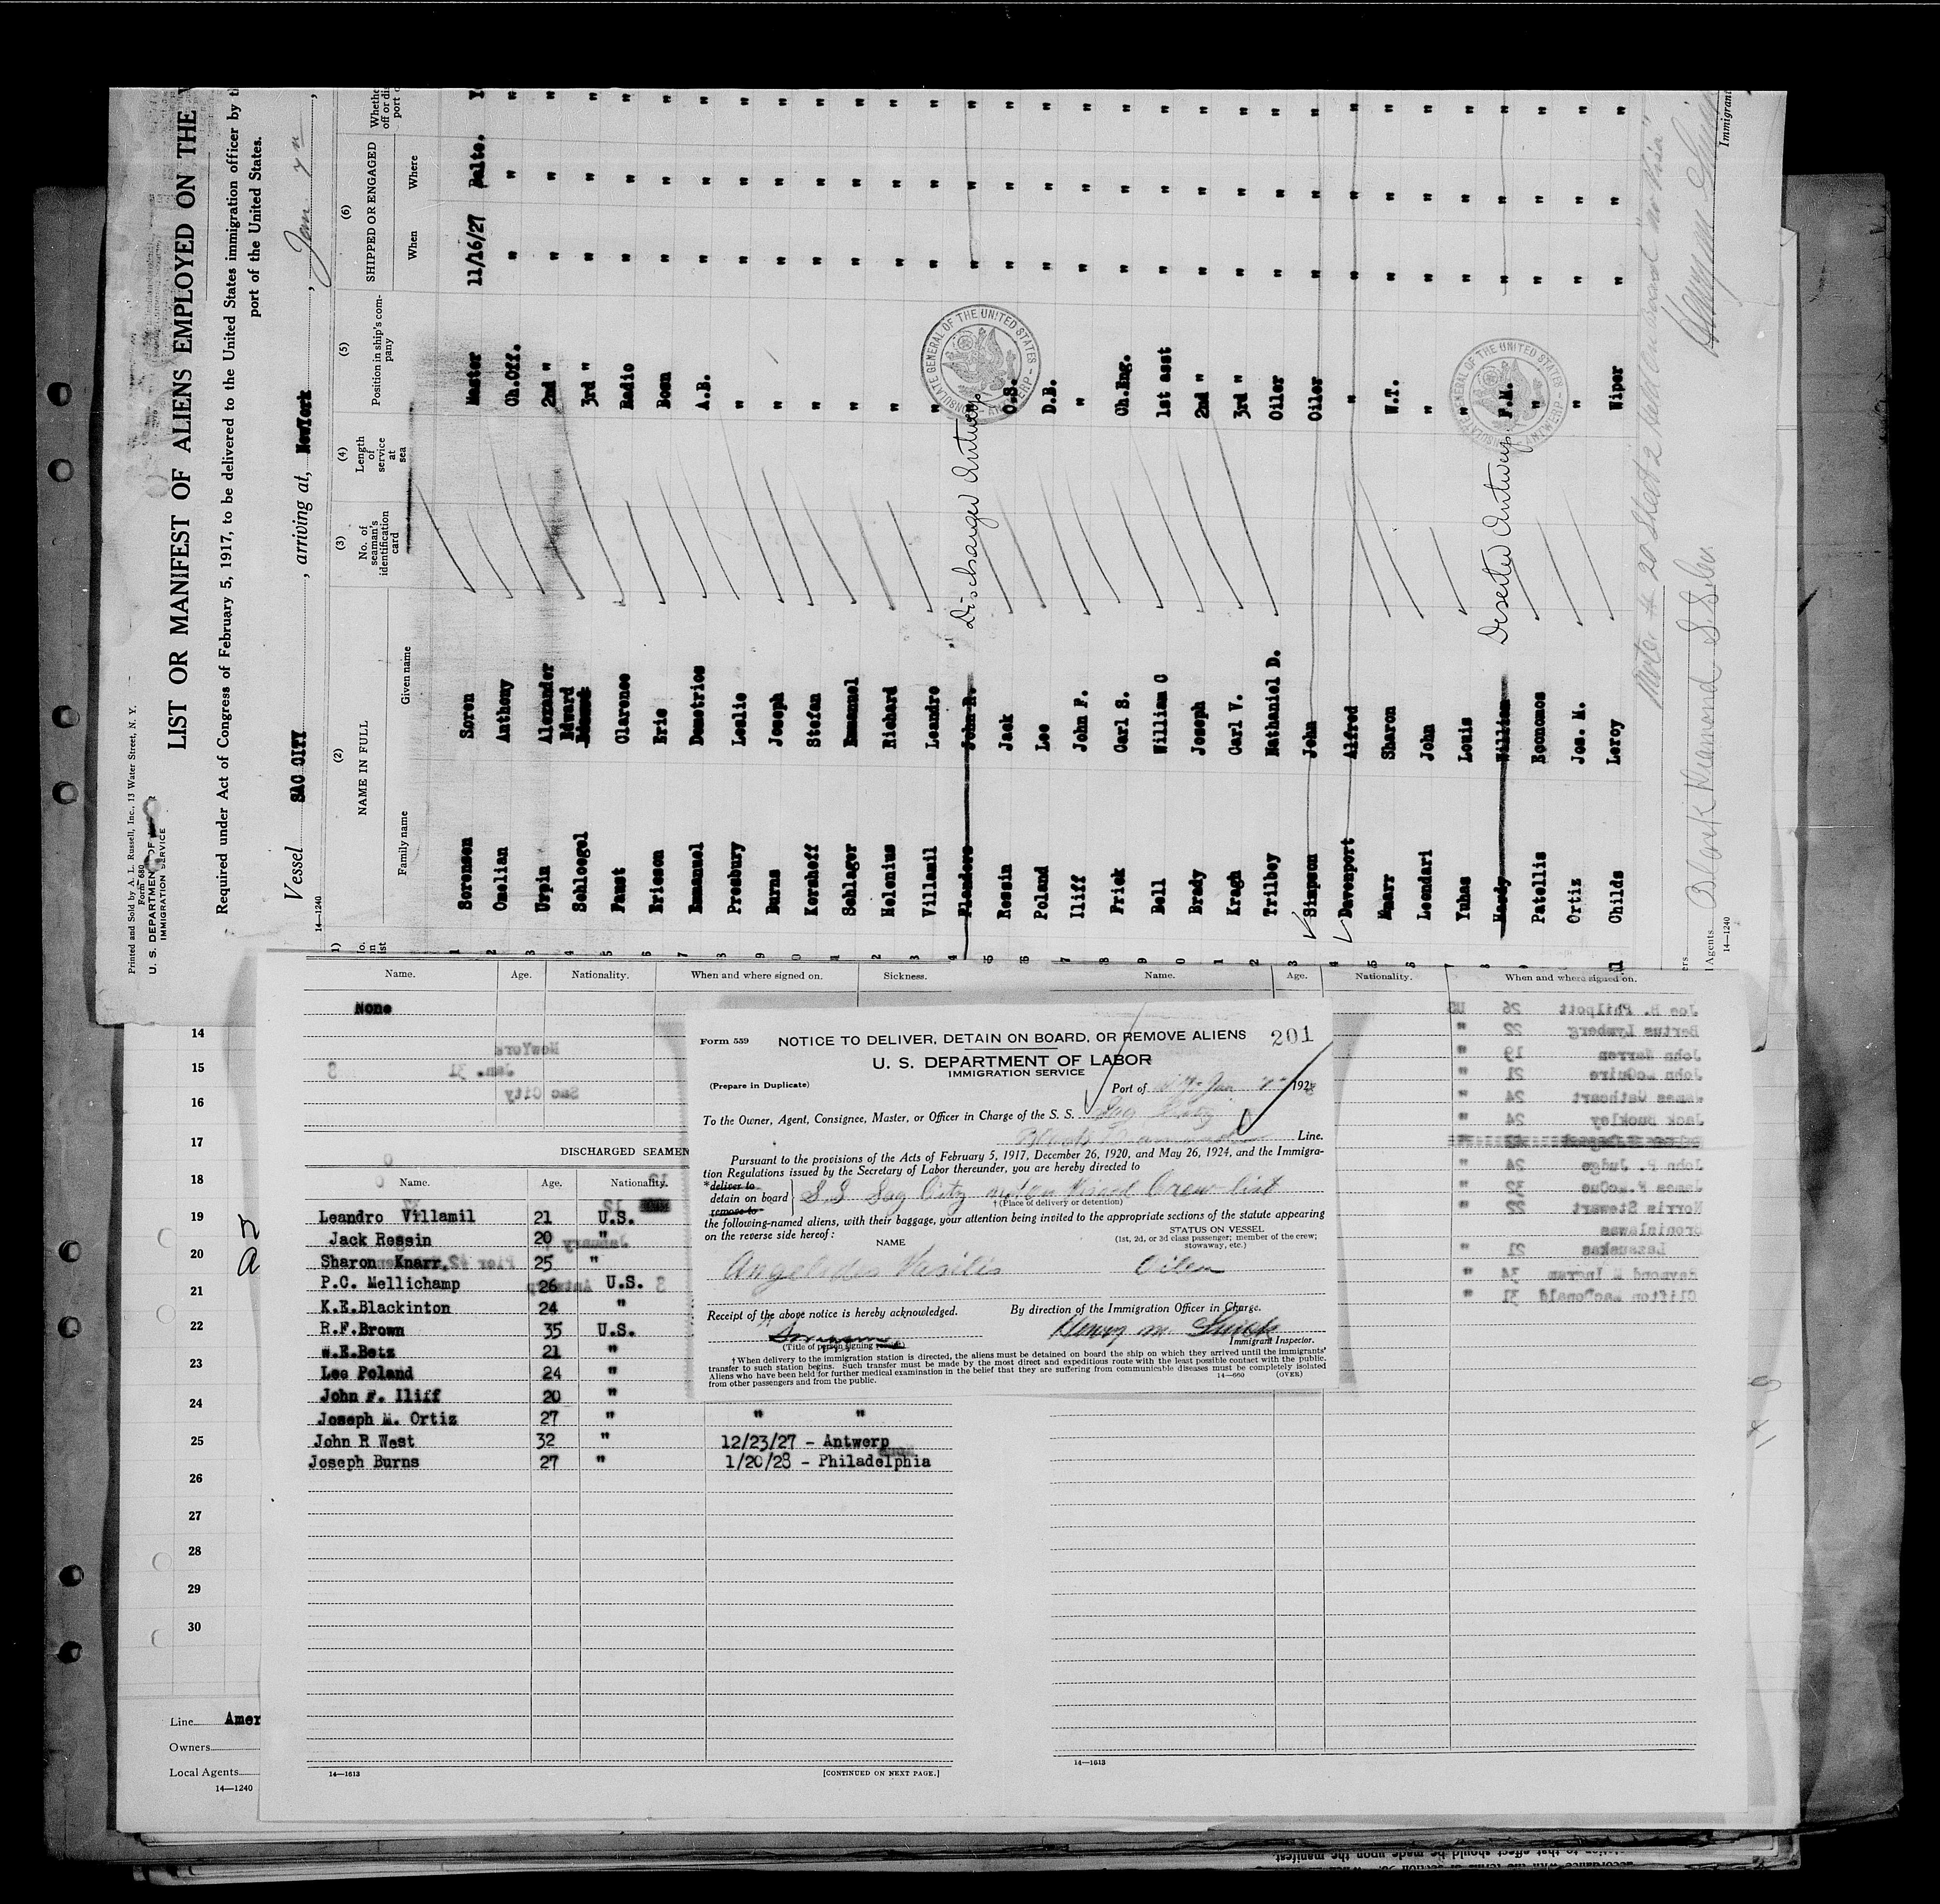 Printed and Sold by A. L. Russell, Inc., 13 Water Street, N. Y.
Form 680
U. S. DEPARTMENT OF
IMMIGRATION SERVICE
LIST OR MANIFEST OF ALIENS EMPLOYED ON THE
Required under Act of Congress of February 5, 1917, to be delivered to the United States immigration officer by
port of the United States.
Vessel SAC CITY, arriving at, NewYork, Jan
14—1240
(2) (3) (4) (5) (6)
NAME IN FULL No. of seaman's identification card Length of service at sea Position in ship's company SHIPPED OR ENGAGED
Family name Given name When Where
1 Sorensen Soren Master 11/16/27 Balto.
2 Omelian Anthony Ch.Off. " " "
3 Urpin Alexander 2nd " " " "
Schloegel Edward 3rd " " " "
5 Faust Clarence Radio " " "
6 Ericson Eric Bosn " " "
7 Emmanuel Demetrios A.B. " " "
8 Presbury Leslie " " " "
9 Burns Joseph " " " "
0 Korsheff Stefan " " " "
1 Schlager Emmanuel " " " "
2 Helenius Richard " " " "
3 Villamil Leandro " " " "
4 Flanders John R. Discharged Antwerp " " "
5 Ressin Jack O.S. " " "
6 Poland Lee D.B. " " "
7 Iliff John F. " " " "
8 Frick Carl S. Ch.Eng. " " "
9 Bell William C 1st asst " " "
0 Brady Joseph 2nd " " " "
1 Kragh Carl V. 3rd " " " "
2 Trilbey Nathaniel D. Oiler " " "
3 Simpson John Oiler " " "
4 Davenport Alfred " " " "
5 Knarr Sharon W.T. " " "
6 Leondari John " " " "
7 Yuhas Louis " " " "
8 Hardy William Deserted Antwerp F.M. " " "
Patellis Economos " " " "
Ortiz Jos. M. " " " "
Childs Leroy Wiper " " "
Agents
14—1240
Immigrant
14
15
16
17
18
19
20
21
22
23
24
25
26
27
28
29
30
Line Amer
Owners
Local Agents
14—1240
Name. Age. Nationality. When and where signed on. Sickness.
Name. Age. Nationality. When and where signed on.
None
DISCHARGED SEAMEN
Name. Age. Nationality.
Leandro Villamil 21 U.S.
Jack Ressin 20 "
Sharon Knarr. 25 "
P.C. Mellichamp 26 U.S.
K.E.Blackinton 24 "
R.F.Brown 35 U.S.
W.E.Betz 21 "
Lee Poland 24 "
John F. Iliff 20 "
Joseph M. Ortiz 27 " " "
John R West 32 " 12/23/27 - Antwerp
Joseph Burns 27 " 1/20/28 - Philadelphia
14—1613 [CONTINUED ON NEXT PAGE.]
14—1613
Form 559 NOTICE TO DELIVER, DETAIN ON BOARD, OR REMOVE ALIENS 201
U. S. DEPARTMENT OF LABOR
IMMIGRATION SERVICE
(Prepare in Duplicate) Port of N.Y. Jan 1928
To the Owner, Agent, Consignee, Master, or Officer in Charge of the S. S. Sag City
Line.
Pursuant to the provisions of the Acts of February 5, 1917, December 26, 1920, and May 26, 1924, and the Immigra-
tion Regulations issued by the Secretary of Labor thereunder, you are hereby directed to
*deliver to
detain on board S.S. Sag City not on Visaed Crew list
remove to †(Place of delivery or detention)
the following-named aliens, with their baggage, your attention being invited to the appropriate sections of the statute appearing
on the reverse side hereof:
NAME STATUS ON VESSEL
(1st, 2d, or 3d class passenger; member of the crew;
stowaway, etc.)
Angelides Vasilis Oiler
Receipt of the above notice is hereby acknowledged. By direction of the Immigration Officer in Charge.
Henry m
(Title of person signing receipt) Immigrant Inspector.
†When delivery to the immigration station is directed, the aliens must be detained on board the ship on which they arrived until the immigrants'
transfer to such station begins. Such transfer must be made by the most direct and expeditious route with the least possible contact with the public.
Aliens who have been held for further medical examination in the belief that they are suffering from communicable diseases must be completely isolated
from other passengers and from the public. 14—660 (OVER)
Joe B. Philpott 26 US
Bertus Lymberg 22 "
John Herren 19 "
John McGuire 21 "
James Cathcart 24 "
Jack Buckley 24 "
John P. Judge 24 "
James F. McCue 32 "
Norris Stewart 22 "
Lesauskas 21 "
Raymond M Ingram 34 "
Clifton MacDonald 31 "